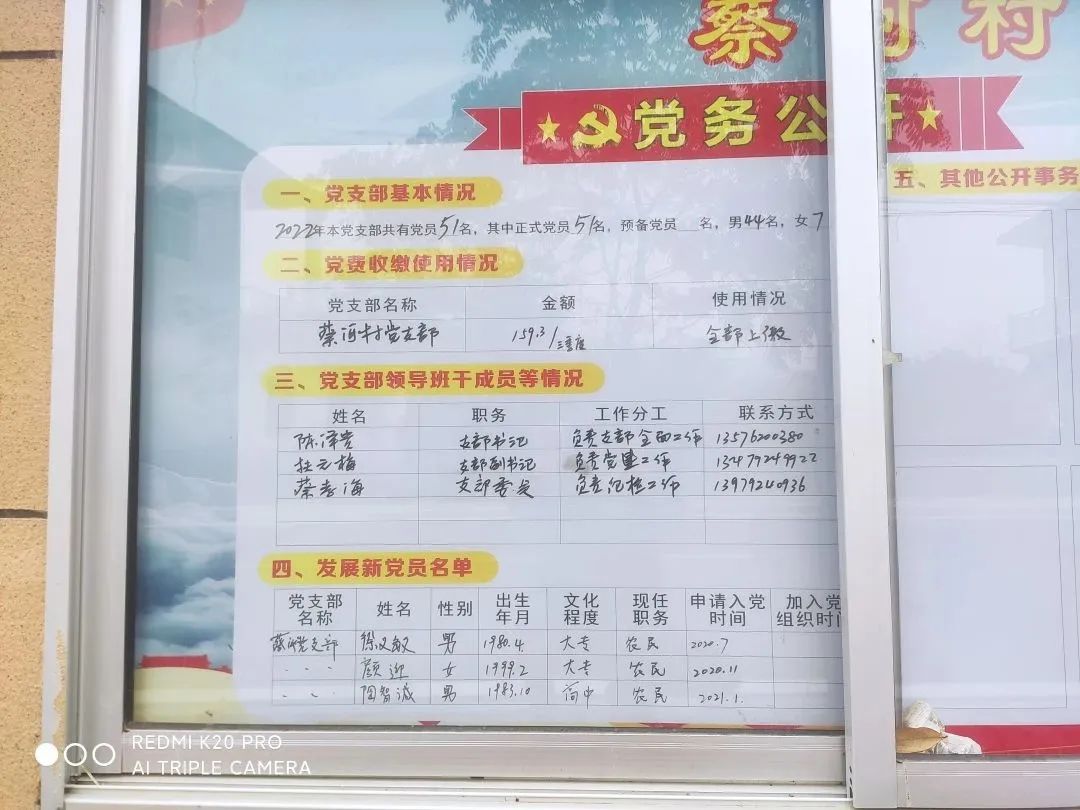 蔡河村
党务公开
一、党支部基本情况
2022年本党支部共有党员51名，其中正式党员51名，预备党员 名，男44名，女7
二、党费收缴使用情况
党支部名称 金额 使用情况
蔡河村党支部 159.3/三季度 全部上缴
三、党支部领导班干成员等情况
姓名 职务 工作分工 联系方式
陈泽贵 支部书记 负责支部全面工作 13576200380
杜元梅 支部副书记 负责党建工作 13479249922
蔡孝海 支部委员 负责纪检工作 13979240936
四、发展新党员名单
党支部名称 姓名 性别 出生年月 文化程度 现任职务 申请入党时间 加入党组织时间
蔡河党支部 徐义敏 男 1980.4. 大专 农民 2020.7
颜迎 女 1999.2 大专 农民 2020.11
陶智诚 男 1983.10 高中 农民 2021.1.
五、其他公开事务
REDMI K20 PRO
AI TRIPLE CAMERA